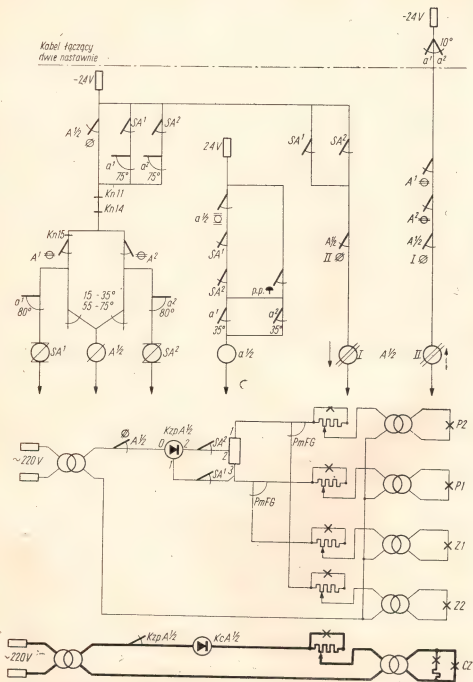 -24V
10°
a¹ a²
Kabel łączący
dwie nastawnie
-24V
A½
SA¹
SA²
a¹
75°
a²
75°
Kn11
Kn14
Kn15
A¹
A²
a¹
80°
15-35°
55-75°
a²
80°
SA¹
A½
SA²
24V
a½
SA¹
SA²
p.p.
a¹
35°
a²
35°
a½
SA¹
SA²
A½
II Ø
I
A½
A¹
A²
A½
I Ø
II
~220V
Ø
A½
KzpA½
0
2
1
SA²
SA¹
1
2
3
PmFG
PmFG
P2
P1
Z1
Z2
~220V
KzpA½
KcA½
CZ